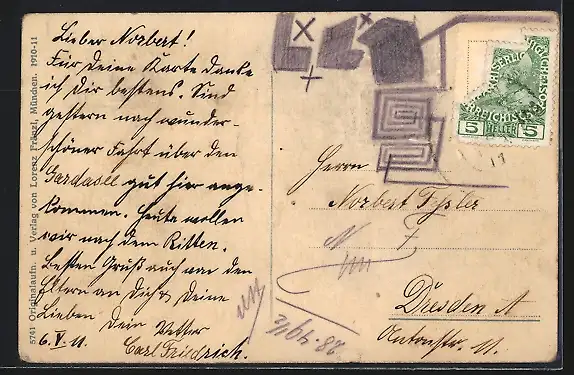 Lieber Norbert!
Für deine Karte danke
ich Dir bestens. Sind
gestern nach wunder-
schöner Fahrt über den
Gardasee gut hier ange-
kommen. Heute wollen
wir nach dem Ritten.
Besten Gruß auch von den
Eltern an Dich & Deine
Lieben Dein Vetter
6.V.11 Carl Friedrich.
5741 Originalaufn. u. Verlag von Lorenz Fränzl, München. 1910-11
5 HELLER 5
Herrn
Norbert
Dresden A
Antonstr. 11.